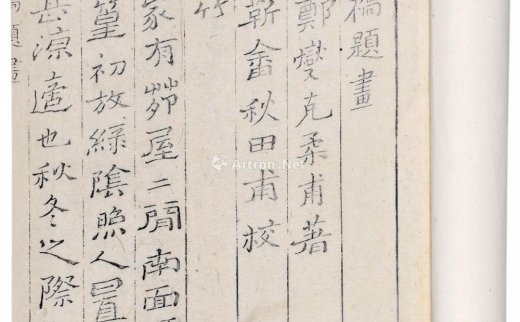 橋題畫
鄭燮克柔甫著
靳畬秋田甫校
竹
家有茆屋二間南面
篁初放綠陰照人置
甚涼適也秋冬之際
題畫
Artron.Net